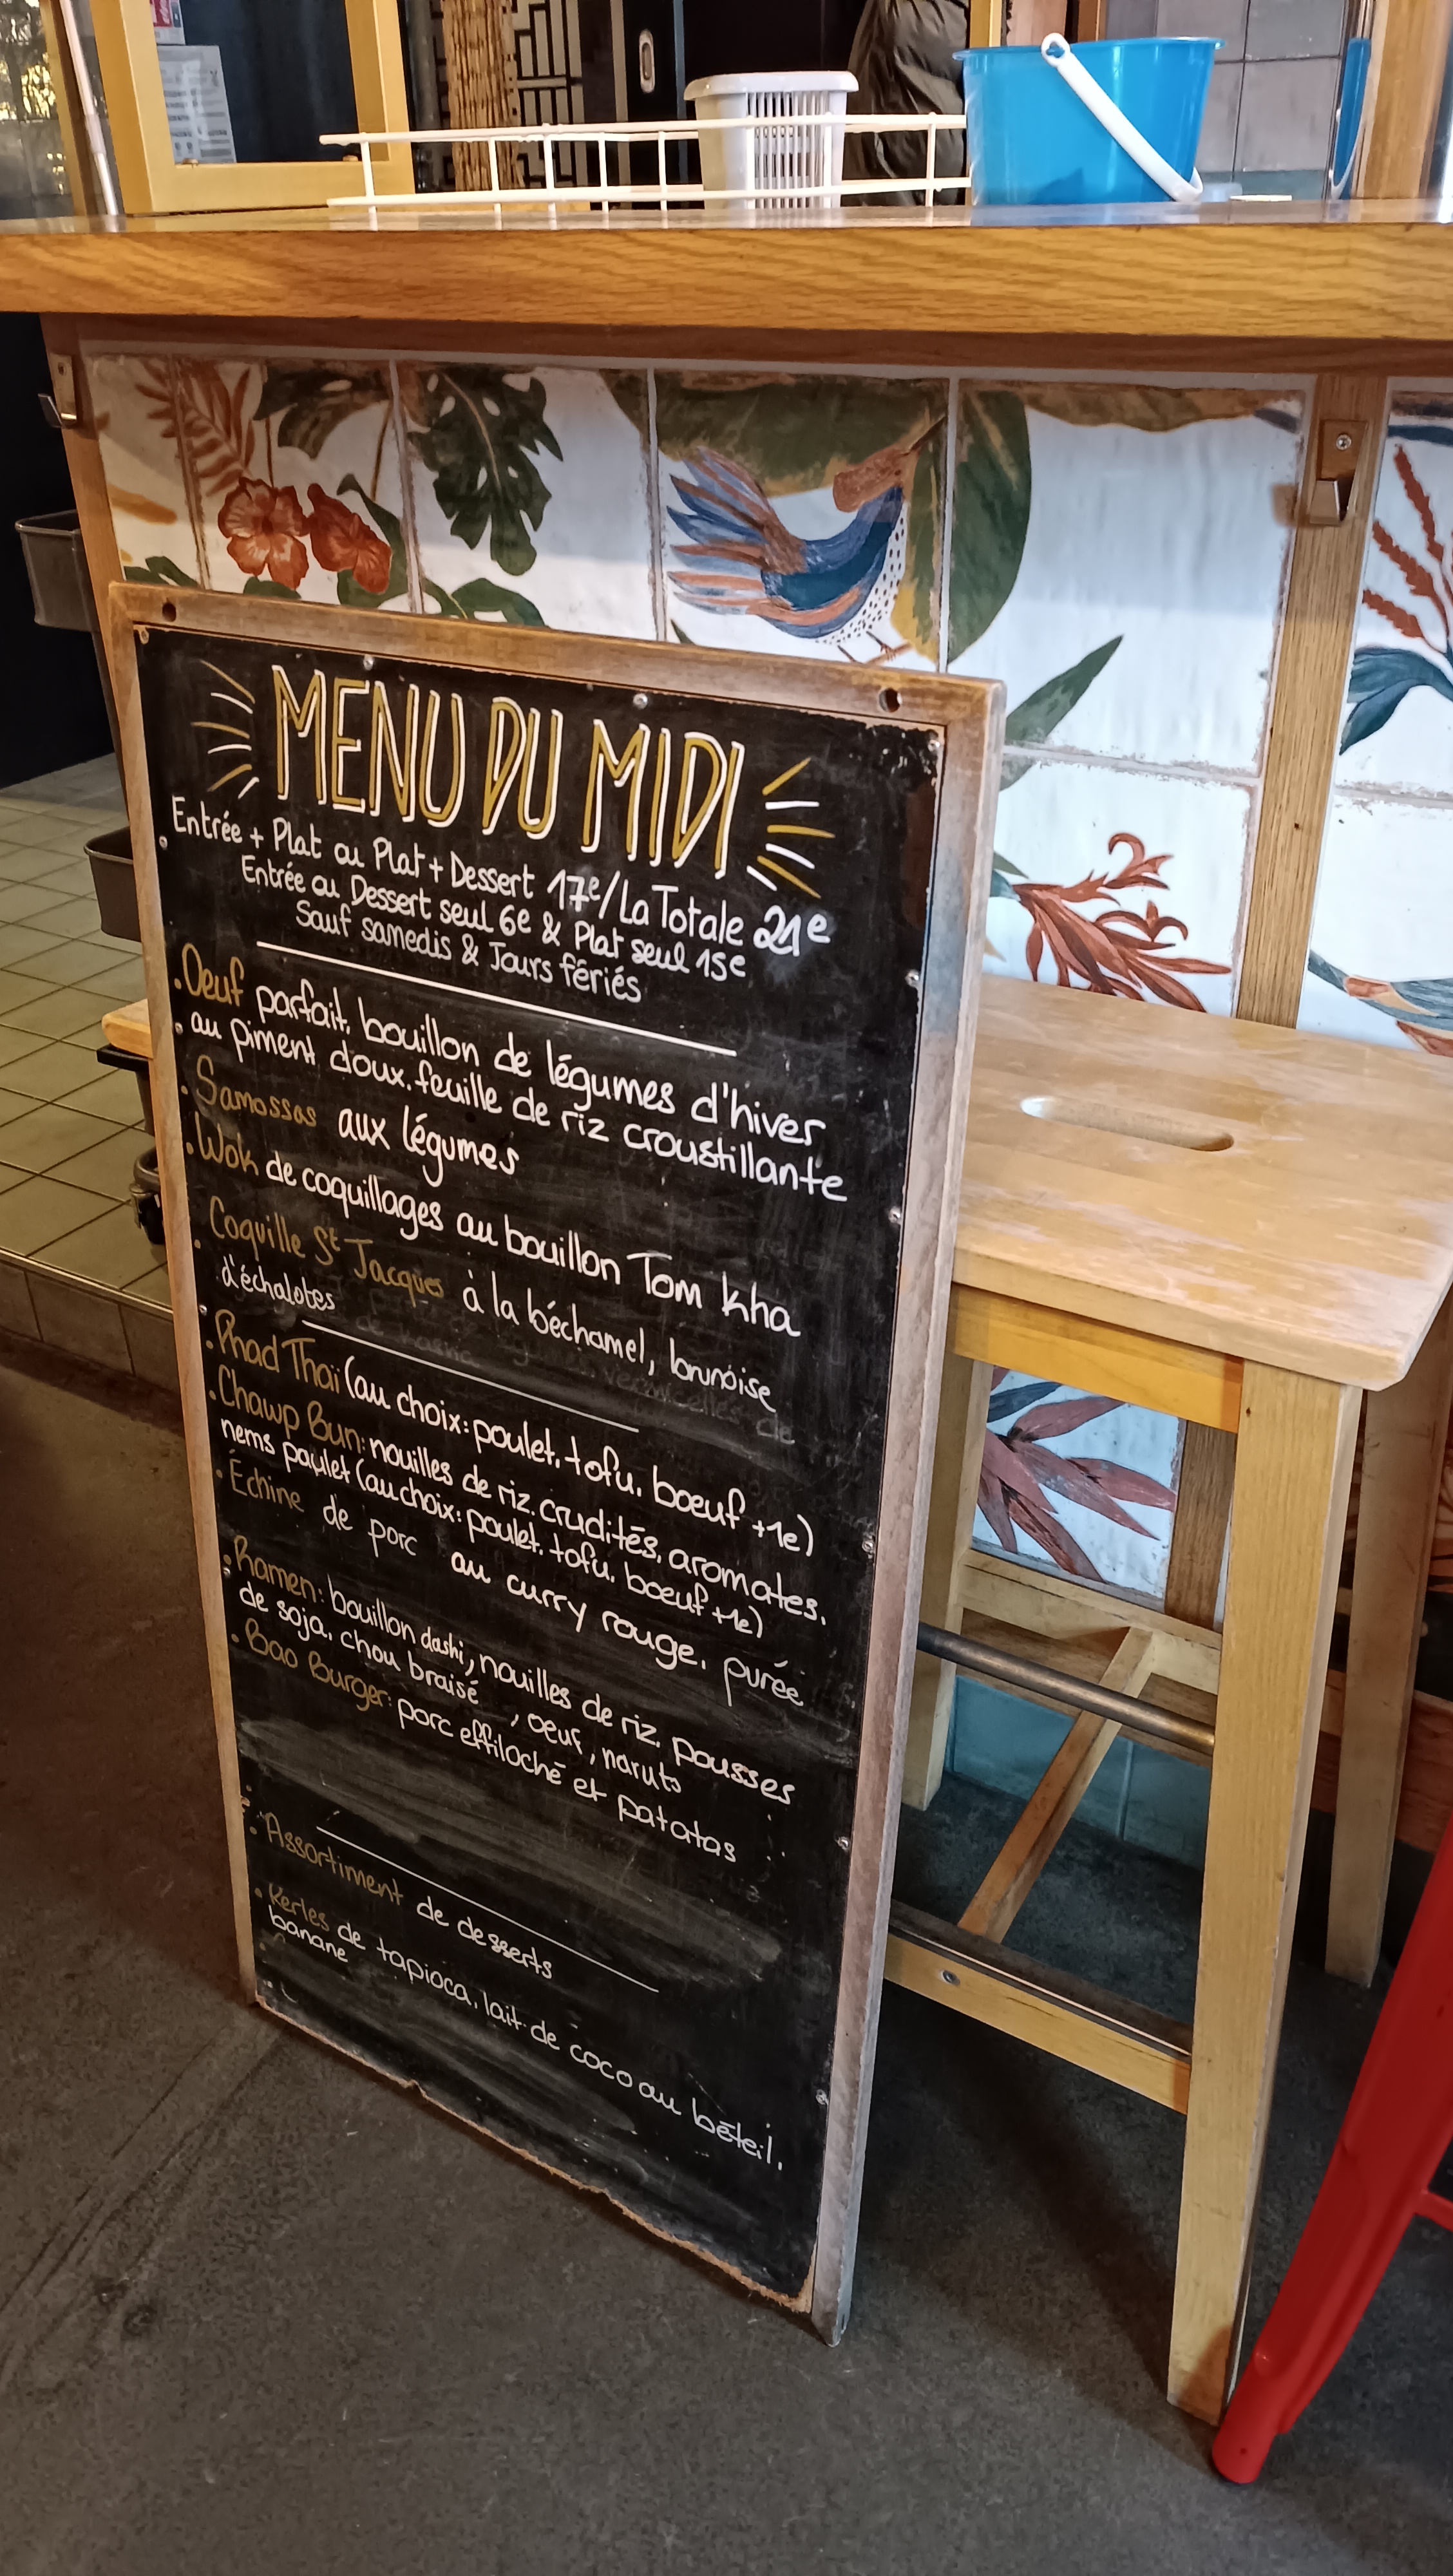 MENU DU MIDI
Entrée + Plat ou Plat + Dessert 17e/La Totale 21e
Entrée ou Dessert seul 6e & Plat seul 15e
Sauf samedis & Jours fériés
. Oeuf parfait, bouillon de légumes d'hiver
. au piment doux, feuille de riz croustillante
. Samossas aux légumes
. Wok de coquillages au bouillon Tom kha
. Coquille St Jacques à la béchamel, brunoise
d'échalotes
. Phad Thaï (au choix: poulet, tofu, boeuf +1e)
. Chawp Bun: nouilles de riz, crudités, aromates,
nems poulet (au choix: poulet, tofu, boeuf +1e)
. Échine de porc au curry rouge, purée
. Ramen: bouillon dashi, nouilles de riz, pousses
de soja, chou braisé, oeuf, naruto
. Bao Burger: porc effiloché et patatas
. Assortiment de desserts
. Perles de tapioca, lait de coco au bétel,
banane